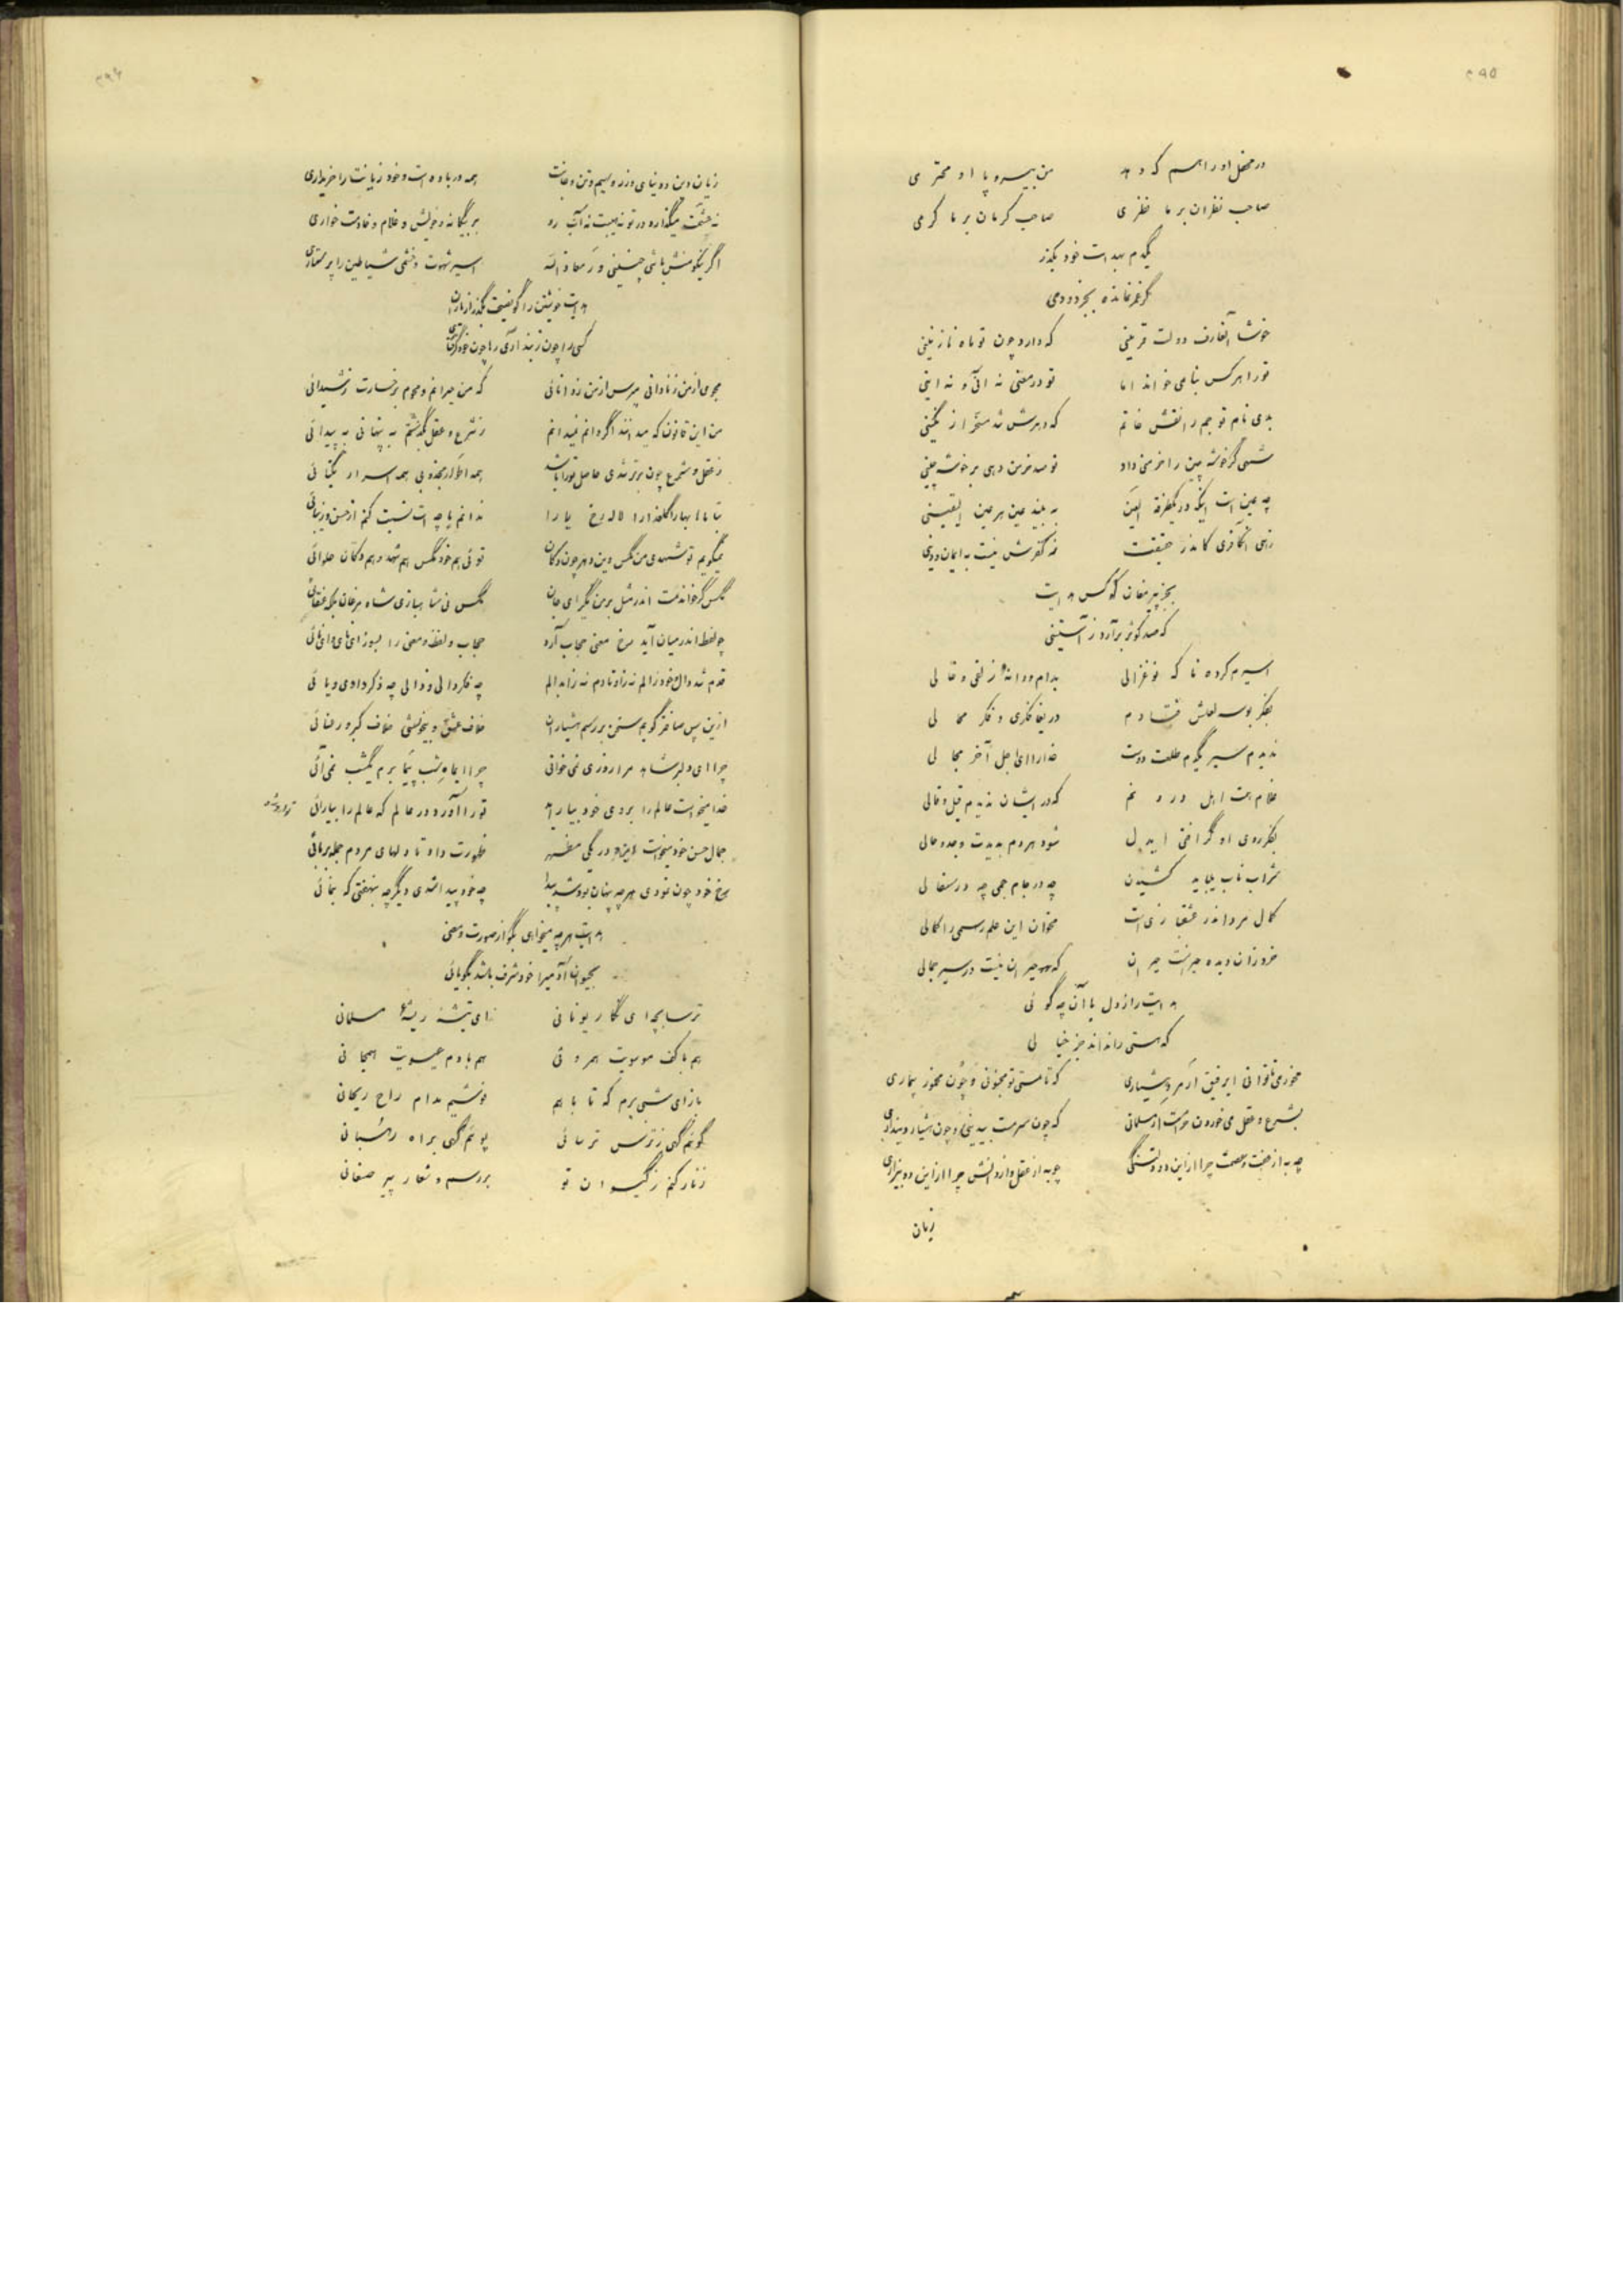 ۲۹۵
در محفل او را هم که دهد من بی سر و پا او محترمی
صاحب نظران بر ما نظری صاحب کرمان بر ما کرمی
یکدم بهدایت خود بگذر
گر عمر نمانده بجز دو دمی
خوشا آنعارف دولت قرینی که دارد چون تو ماه نازنینی
تو را هر کس بنامی خواند اما تو در معنی نه آنی و نه اینی
بدی نام تو جم را نقش خاتم که دهرش شد مسخر از نگینی
شهی گر خوشه چین را خرمنی داد تو صد خرمن دهی بر خوشه چینی
چه عین است اینکه در یکطرفة العین به بیند عین هر عین الیقینی
زهی آنکافری کاندر حقیقت نه کفرش نیست به ایمان و دینی
بجز پیر مغان کو کس هدایت
که صد کوثر برآرد ز آستینی
اسیرم کرده تا که نو غزالی بدام و دانهٔ زلفی و خالی
بفکر بوسه لعلش فتادم دریغا فکری و فکر محالی
ندیدم سیر یکدم طلعت دوست خدارا ای اجل آخر مجالی
غلام همت اهل دردم که در ایشان ندیدم قیل و قالی
بفکر روی او گر افتی ایدل شود هر دم بدیدت وجد و حالی
شراب ناب بباید کشیدن چه در جام جمی چه در سفالی
کمال مرد اندر عشقبازی است مخوان این علم رسمی را کمالی
فروزان دیده حیرانست حیران که حیران نیست در سیر جمالی
هدایت راز دل با آن چه گوئی
که هستی را نداند جز خیالی
مخور می تا توانی ای رفیق ار مرد هشیاری که تا مستی تو مجنونی و چون مخمور بیماری
بشرع و عقل می خوردن حرامست ار مسلمانی که چون سرمست بیدینی و چون هشیار دینداری
چه به از عفت و عصمت چرا از این دو دلتنگی چه به از عقل و از دانش چرا از این دو بیزاری
زیان
۲۹۶
زیان دین و دنیای و زر و سیم و تن و جانت همه در باده است و خود زیانت را خریداری
نه حشمت میگذارد در تو نه هیبت نه آب رو بر بیگانه و خویش و غلام و خادمت خواری
اگر نیکو منش باشی چنینی ور معاذ الله اسیر شهوت و خشمی شیاطین را پرستاری
هدایت خویشتن را گو نصیحت بگذر از یاران
کسی را چون ز بند آری رها چون خود گرفتاری
مجوی از من ز نادانی مپرس از من ز دانائی که من حیرانم و محوم بر خسارت ز شیدائی
من این قانون که میدانند اگر دانم نمیدانم ز شرع و عقل بگذشتم به پنهانی به پیدائی
ز عقل و شرع چون برتر شدی حاصل تو را باشد همه اطوار مجذوبی همه اسرار یکتائی
بتا ماها بهارا گلعذارا لاله رخ یارا ندانم با چه است نسبت کنم از حسن و زیبائی
نمیگویم تو شهدی من مگس وین دهر چون دکان توئی هم خود مگس هم شهد و هم دکان حلوائی
مگس گر خواندمت اندر مثل بر من مگیر ای جان مگس نی شاهبازی شاه مرغان بلکه عنقائی
چو لفظ اندر میان آید رخ معنی حجاب آرد حجاب و لفظ و معنی را بسوز ای نای و ای نائی
قدم شد دال خود زالم نه زاد تا دم نه زابدالم چه فکر دالی و ذالی چه ذکر دادی و یائی
ازین پس صاف تر گویم سخن بر رسم هشیاران خلاف عشق و بیخویشی خلاف کبر و رعنائی
چرا ای دلبر شاهد مرا روزی نمی خوانی چرا ای ماه شب پیما برم یکشب نمی آئی
خدا میخواست عالم را بروی خود بیاراید تو را آورد در عالم که عالم را بیارائی
جمال حسن خود میخواست در یکی مظهر ظهورت داد تا دلهای مردم جمله بربائی
رخ خود چون نمودی هر چه پنهان بود شد پیدا چه خود پیدا شدی دیگر چه بنهفتی که بنمائی
هدایت هر چه میخواهی بگو از صورت و معنی
بحیوان آدمیرا خود شرف باشد بگویائی
ترسا بچه ای نگار یونانی ای تیشهٔ ریشهٔ مسلمانی
هم با کف موسویت همروئی هم با دم عیسویت همجانی
بازای شبی برم که تا با هم نوشیم مدام راح ریحانی
گویم گهی ز ترس ترسائی پویم گهی براه رهبانی
زنار کنم ز گیسوان تو بر رسم و شعار پیر صنعانی